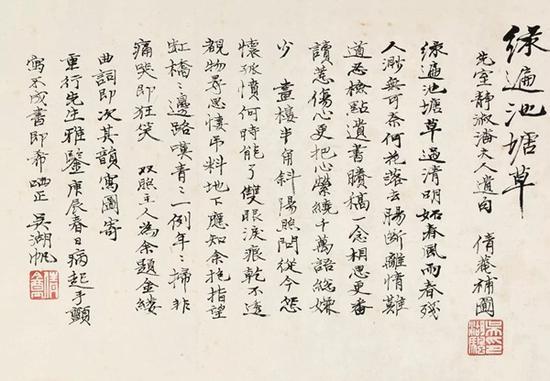 綠遍池塘草
先室靜淑潘夫人遺句 倩菴補圖
綠遍池塘草過清明妬春風雨春殘
人渺無可奈何花落去腸斷離情難
道忍檢點遺書賸稿一念相思更番
讀惹傷心更把心縈繞千萬語總嫌
少 畫樓半角斜陽照問從今怨
懷孤憤何時能了雙眼淚痕乾不透
覩物尋思悽弔料地下應知余抱指望
虹橋〻邊路嘆青〻一例年〻掃非
痛哭即狂笑 双照主人為余題金縷
曲詞即次其韻寫圖寄
重行先生雅鑒庚辰春日病起手顫
寫不成書即希哂正 吳湖帆